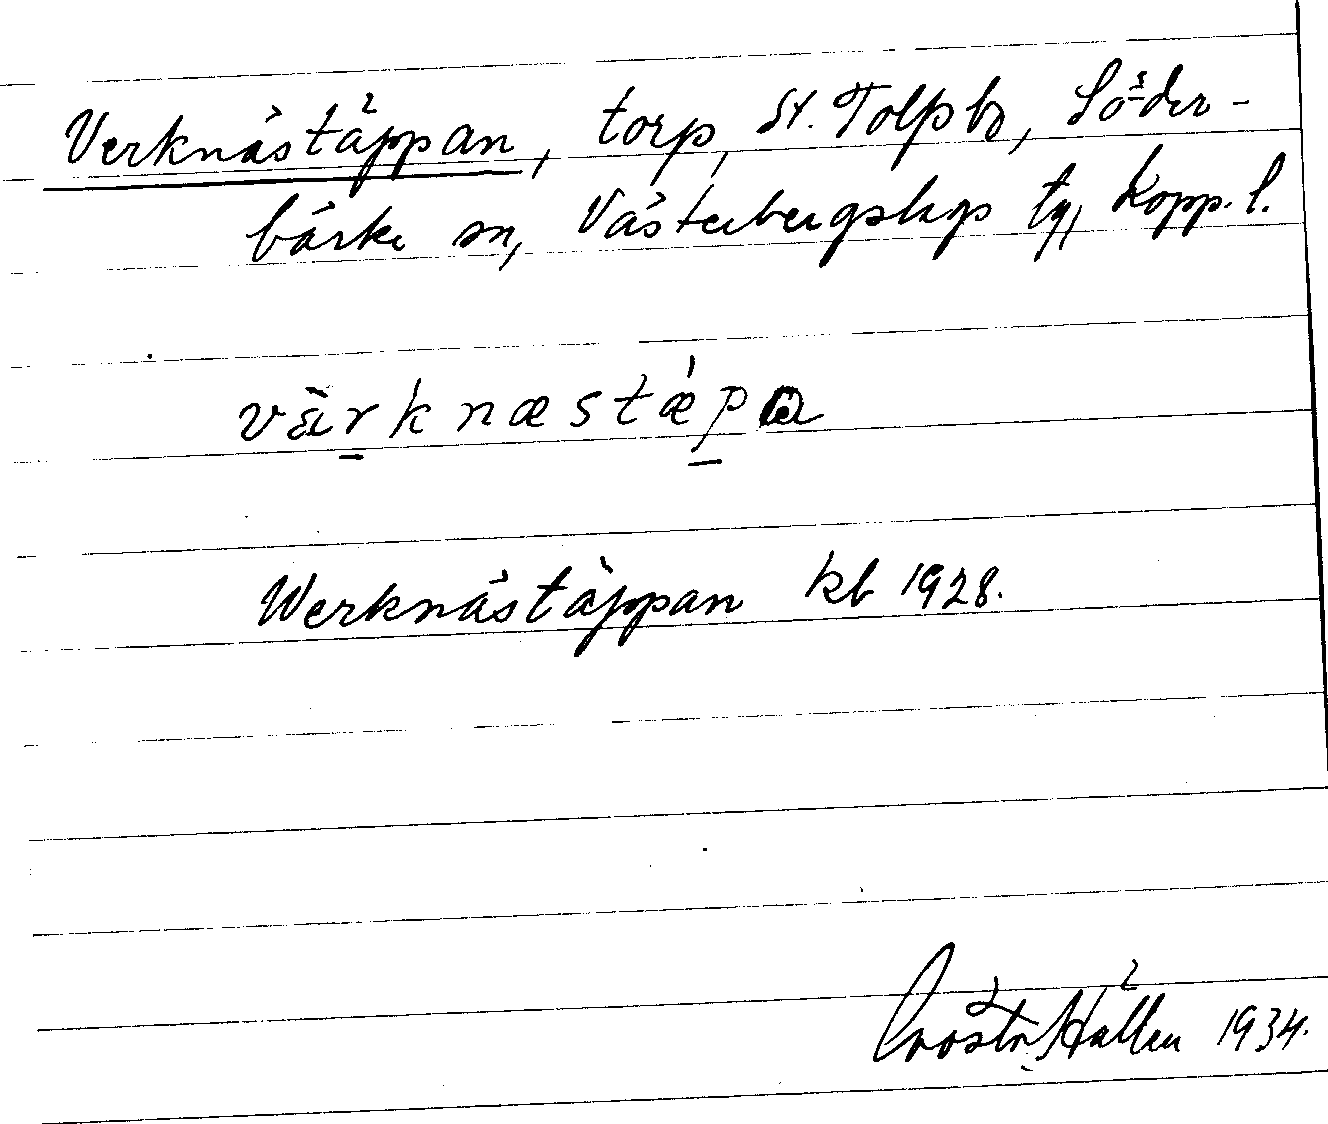 Verknästäppan, torp, St. Tolfsbo, Söder-
bärke sn, Västerbergslags tg, Kopp. l.
vä̀rknæstǽpa
Werknästäppan kb 1928.
Hällén 1934.